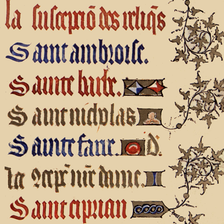 la suscepciō des reliq̄s
Saint ambroise.
Sainte barbe.
Saint nicholas
Sainte fare. d.
la 9cepc̄ nr̄e dame.
Saint ciprian